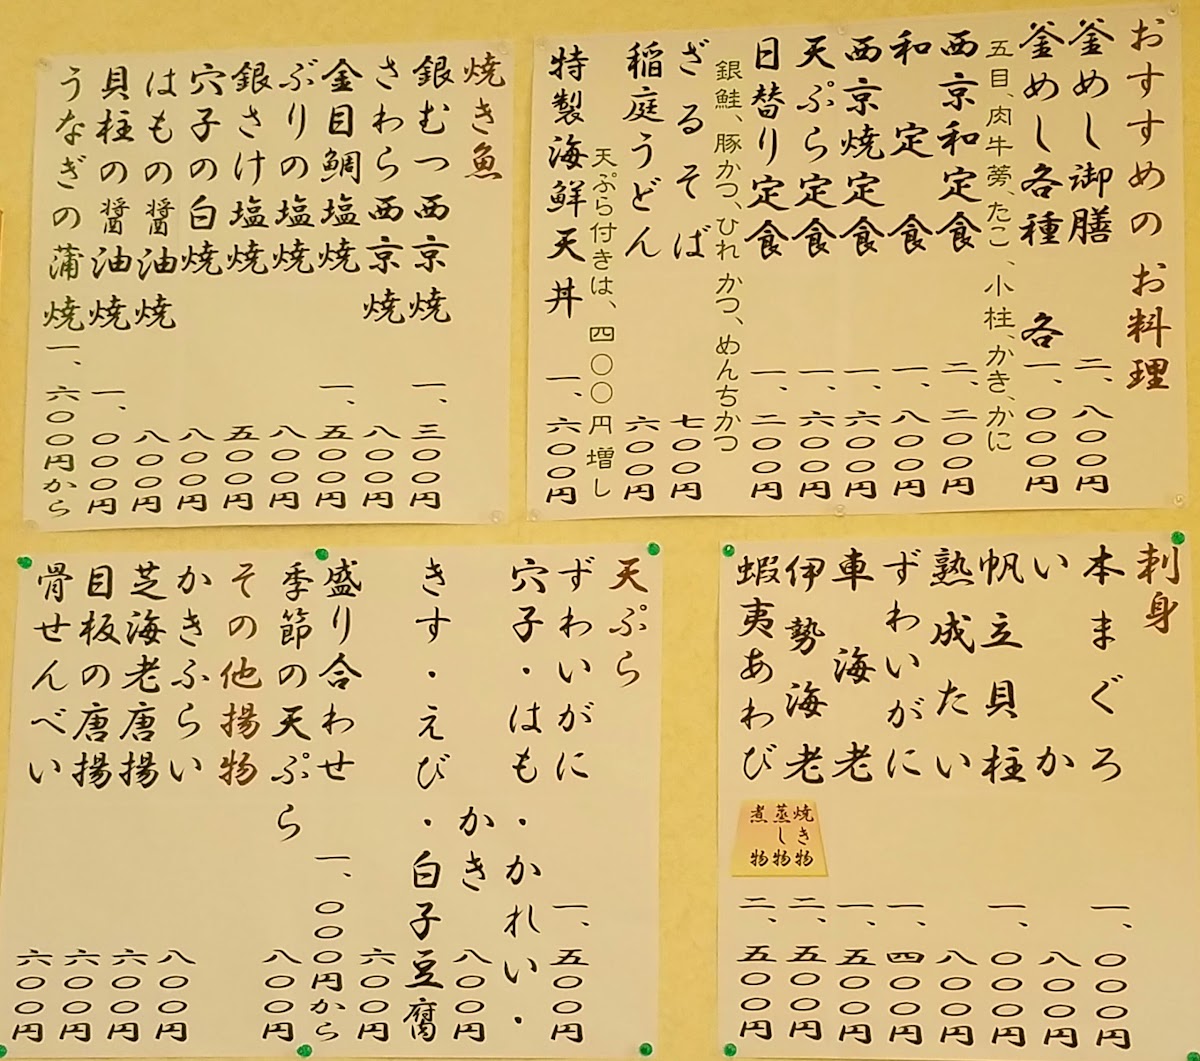 おすすめのお料理
釜めし御膳 二、八〇〇円
釜めし各種 各一、〇〇〇円
五目、肉牛蒡、たこ、小柱、かき、かに
西京和定食 二、二〇〇円
和定食 一、八〇〇円
西京焼定食 一、六〇〇円
天ぷら定食 一、六〇〇円
日替り定食 一、二〇〇円
銀鮭、豚かつ、ひれかつ、めんちかつ
ざるそば 七〇〇円
稲庭うどん 六〇〇円
天ぷら付きは、四〇〇円増し
特製海鮮天丼 一、六〇〇円
焼き魚
銀むつ西京焼 一、三〇〇円
さわら西京焼 八〇〇円
金目鯛塩焼 一、五〇〇円
ぶりの塩焼 八〇〇円
銀さけ塩焼 五〇〇円
穴子の白焼 八〇〇円
はもの醤油焼 八〇〇円
貝柱の醤油焼 一、〇〇〇円
うなぎの蒲焼 一、六〇〇円から
刺身
本まぐろ 一、〇〇〇円
いか 八〇〇円
帆立貝柱 一、〇〇〇円
熟成たい 八〇〇円
ずわいがに 一、四〇〇円
車海老 一、五〇〇円
伊勢海老 二、五〇〇円
蝦夷あわび 二、五〇〇円
焼き物
蒸し物
煮物
天ぷら
ずわいがに 一、五〇〇円
穴子・はも・かれい・
かき 八〇〇円
きす・えび・白子豆腐
六〇〇円
盛り合わせ 一、〇〇〇円から
季節の天ぷら 八〇〇円
その他揚物
かきふらい 八〇〇円
芝海老唐揚 六〇〇円
目板の唐揚 六〇〇円
骨せんべい 六〇〇円